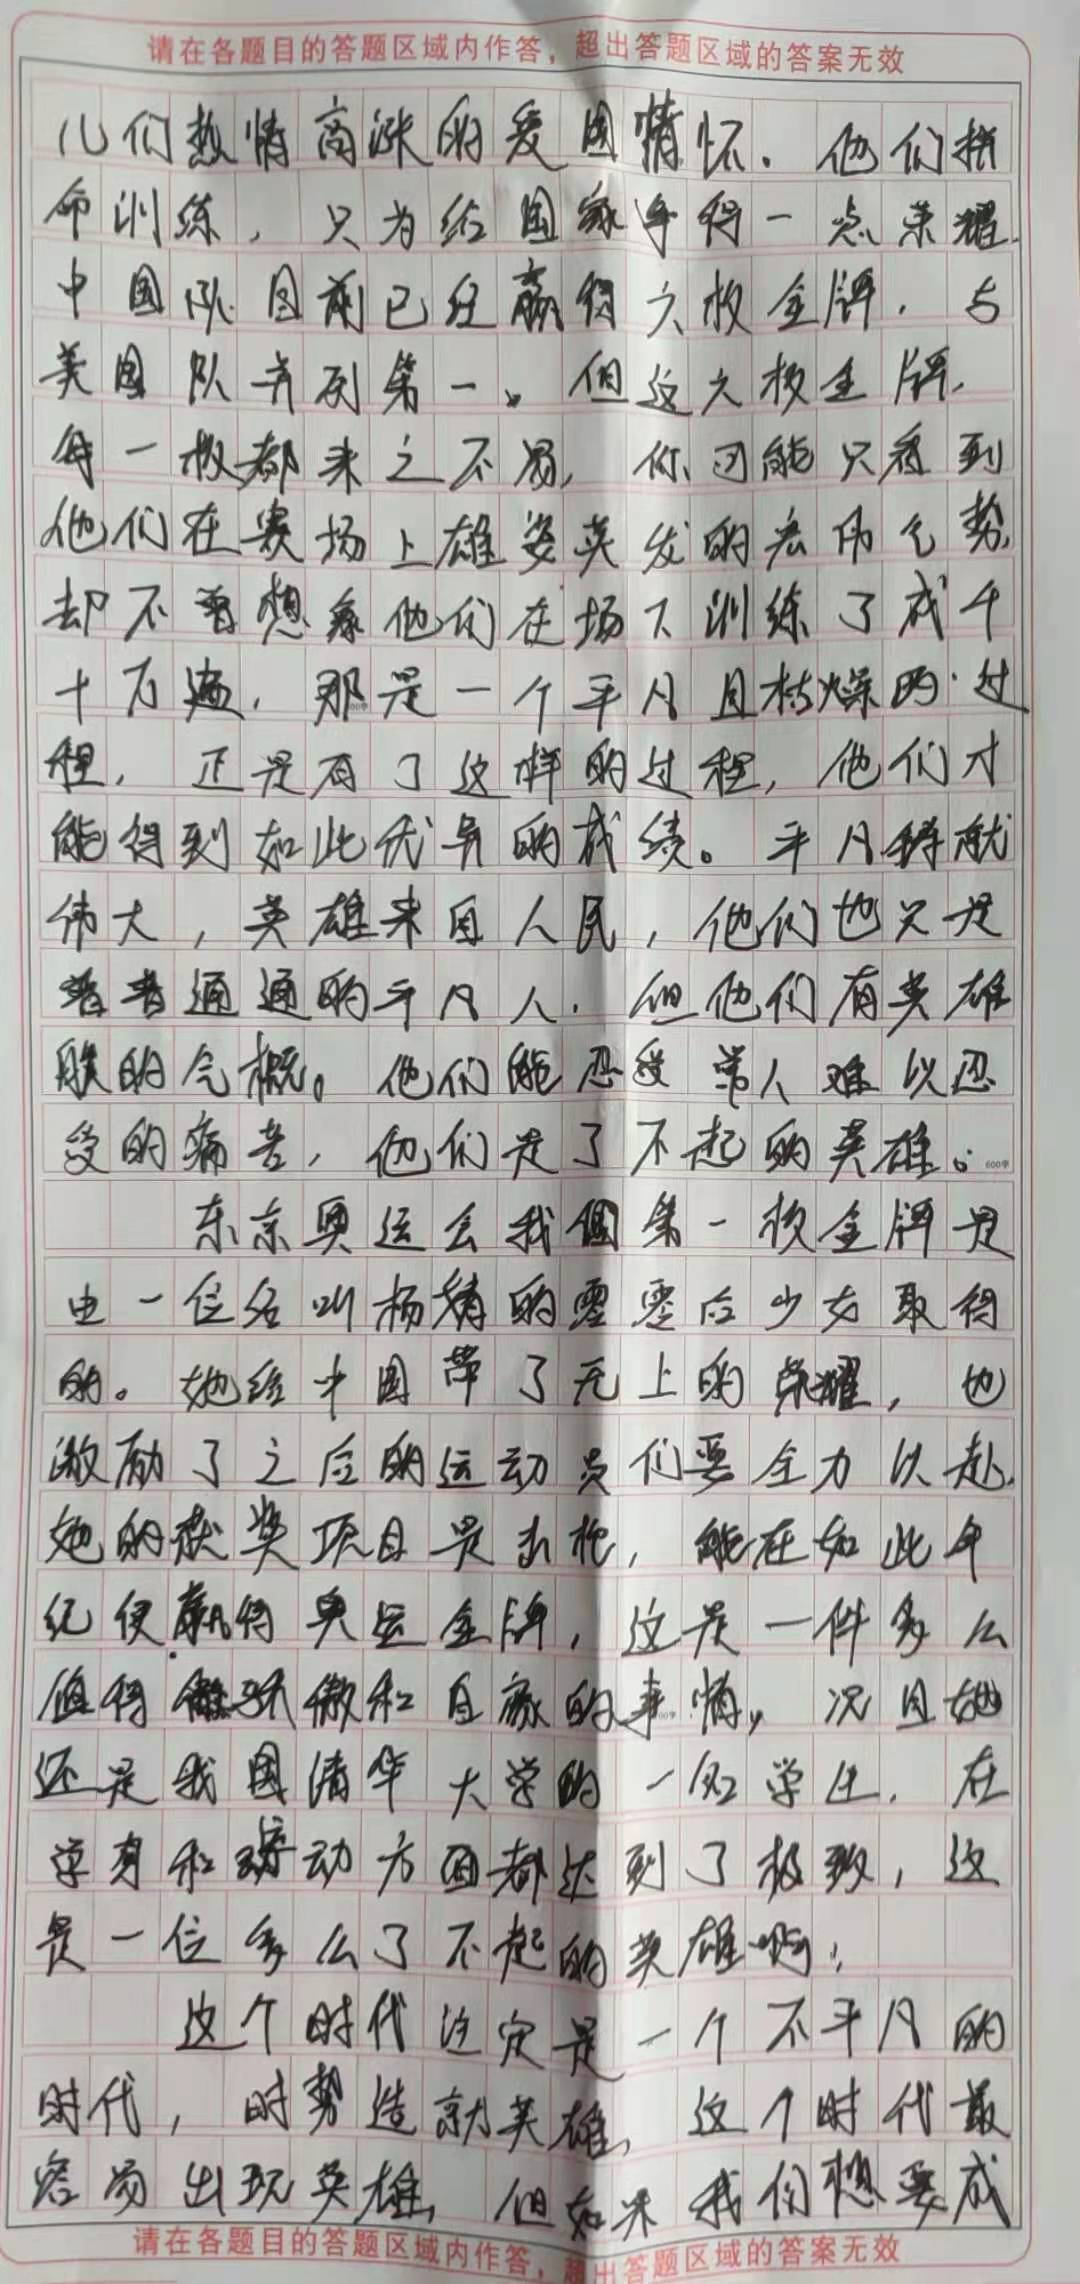 请在各题目的答题区域内作答，超出答题区域的答案无效
儿们热情高涨的爱国情怀。他们拼
命训练，只为给国家争得一点荣耀。
中国队目前已经赢得六枚金牌，与
美国队并列第一。但这六枚金牌，
每一枚都来之不易，你可能只看到
他们在赛场上雄姿英发的宏伟气势，
却不曾想象他们在场下训练了成千
十万遍，那是一个平凡且枯燥的过
程，正是有了这样的过程，他们才
能得到如此优异的成绩。平凡铸就
伟大，英雄来自人民，他们也只是
普普通通的平凡人，但他们有英雄
般的气概。他们能忍受常人难以忍
受的痛苦，他们是了不起的英雄。
600字
东京奥运会我国第一枚金牌是
由一位名叫杨倩的零零后少女取得
的。她给中国带了无上的荣耀，也
激励了之后的运动员们要全力以赴。
她的获奖项目是击枪，能在如此年
纪便赢得奥运金牌，这是一件多么
值得骄傲和自豪的事情，况且她
还是我国清华大学的一名学生，在
学习和运动方面都达到了极致，这
是一位多么了不起的英雄啊！
这个时代注定是一个不平凡的
时代，时势造就英雄，这个时代最
容易出现英雄，但如果我们想要成
请在各题目的答题区域内作答，超出答题区域的答案无效